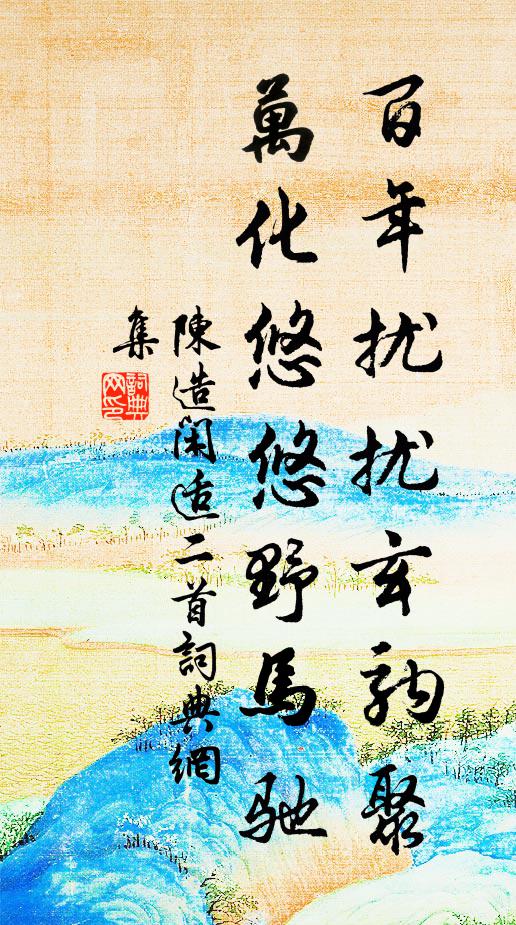 百年扰扰玄駒聚
萬化悠悠野馬馳
陳造闲适二首詞典網
集
詞典
网印